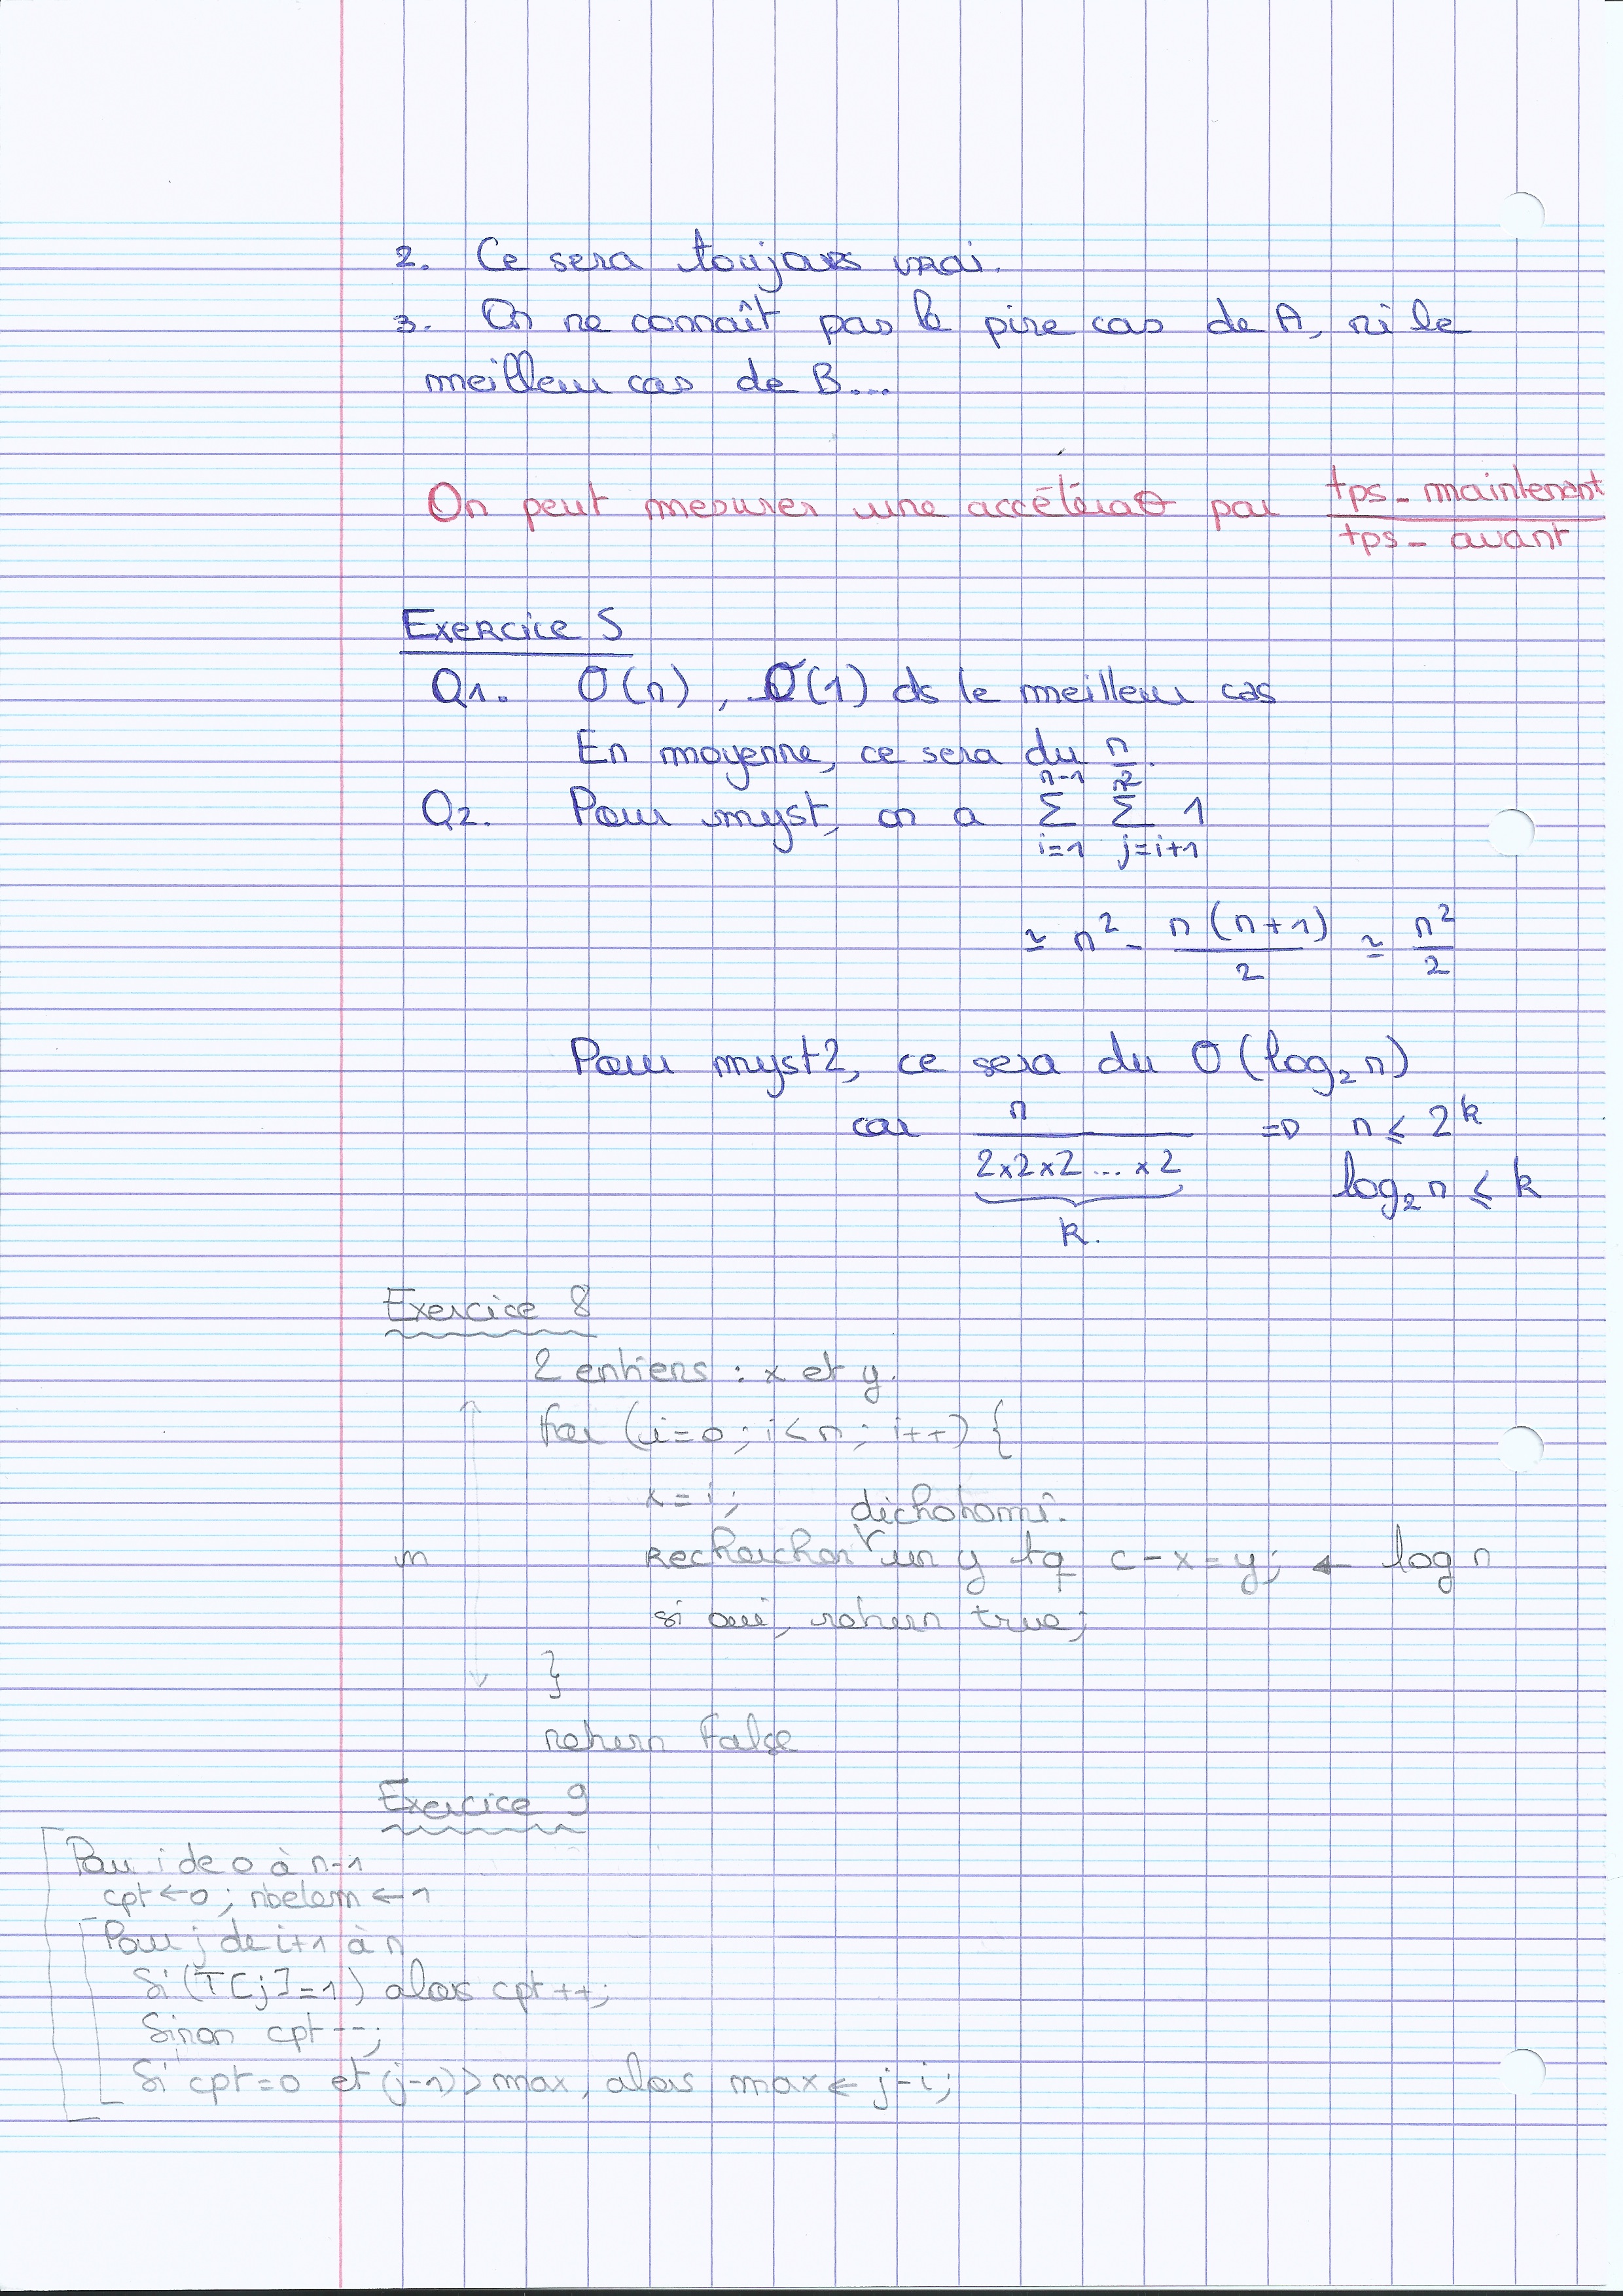 2. Ce sera toujours vrai.
3. On ne connaît pas le pire cas de A, ni le
meilleur cas de B...
On peut mesurer une accélérat° par tps_maintenant / tps_avant
Exercice 5
Q1. O(n), O(1) ds le meilleur cas
En moyenne, ce sera du n/2.
Q2. Pour myst, on a ∑_{i=1}^{n-1} ∑_{j=i+1}^{n} 1
≃ n² - n(n+1)/2 ≃ n²/2
Pour myst2, ce sera du O(log₂ n)
car n / (2×2×2 ... ×2) => n ≤ 2^k
k. log₂ n ≤ k
Exercice 8
2 entiers : x et y.
for (i=0 ; i<n ; i++) {
x = i ; dichotomi.
n Rechercher un y tq c-x=y; ← log n
si oui, return true;
}
return False
Exercice 9
Pour i de 0 à n-1
cpt ← 0 ; nbelem ← 1
Pour j de i+1 à n
Si (T[j]=1) alors cpt++;
Sinon cpt--;
Si cpt=0 et (j-1)>max, alors max ← j-i;